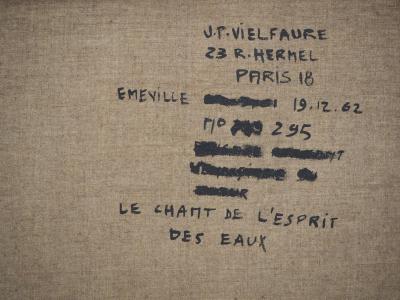 J.P. VIELFAURE
23 R. HERMEL
PARIS 18
EMEVILLE 19.12.62
N° 295
LE CHANT DE L'ESPRIT
DES EAUX